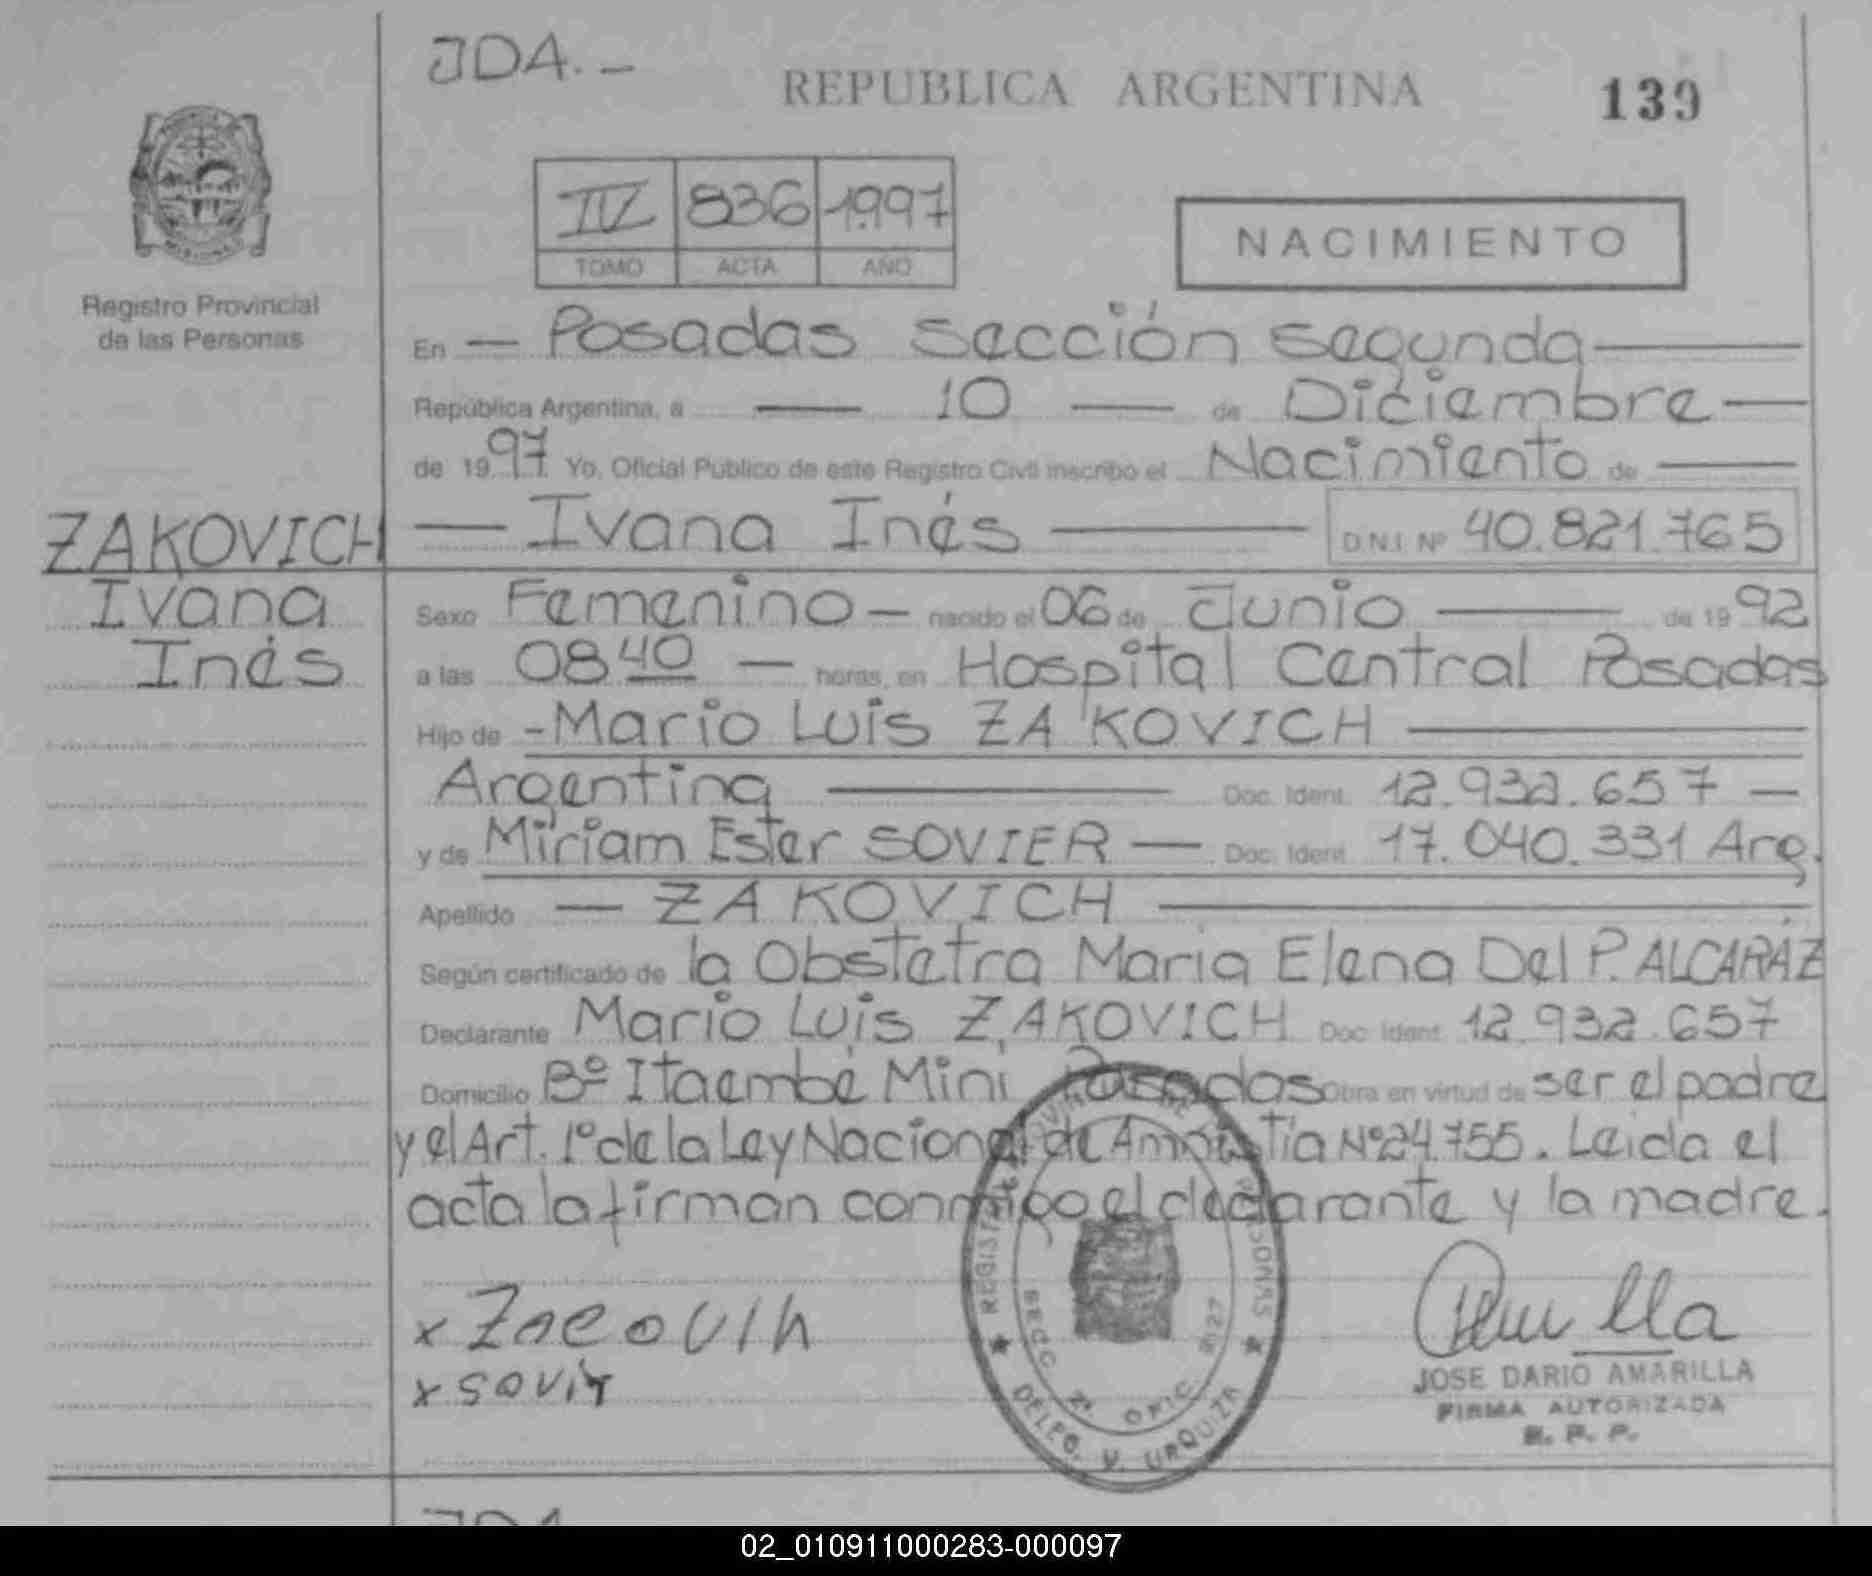 JDA.-
REPUBLICA ARGENTINA
139
IV 836 1.997
TOMO ACTA AÑO
NACIMIENTO
MISIONES
Registro Provincial
de las Personas
En — Posadas Sección Segunda —
República Argentina, a — 10 — de Diciembre —
de 1997. Yo, Oficial Público de este Registro Civil inscribo el Nacimiento de —
ZAKOVICH
— Ivana Inés — D.N.I. Nº 40.821.765
Ivana
Inés
Sexo Femenino — nacido el 06 de Junio — de 1992
a las 08 40 — horas, en Hospital Central Posadas
Hijo de - Mario Luis ZAKOVICH —
Argentina — Doc. Ident. 12.932.657 —
y de Miriam Ester SOVIER — Doc. Ident. 17.040.331 Arg.
Apellido — ZAKOVICH —
Según certificado de la Obstetra Maria Elena Del P. ALCARÁZ
Declarante Mario Luis ZAKOVICH Doc. Ident. 12.932.657
Domicilio Bº Itaembé Mini, Posadas Obra en virtud de ser el padre
y el Art. 1º de la Ley Nacional de Amnistía Nº 24.755. Leida el
acta la firman conmigo el declarante y la madre.
REGISTRO PROVINCIAL DE LAS PERSONAS
SECC 2ª OFIC. 8127
DELEG. V. URQUIZA
x
x
JOSE DARIO AMARILLA
FIRMA AUTORIZADA
R. P. P.
JDA
02_010911000283-000097